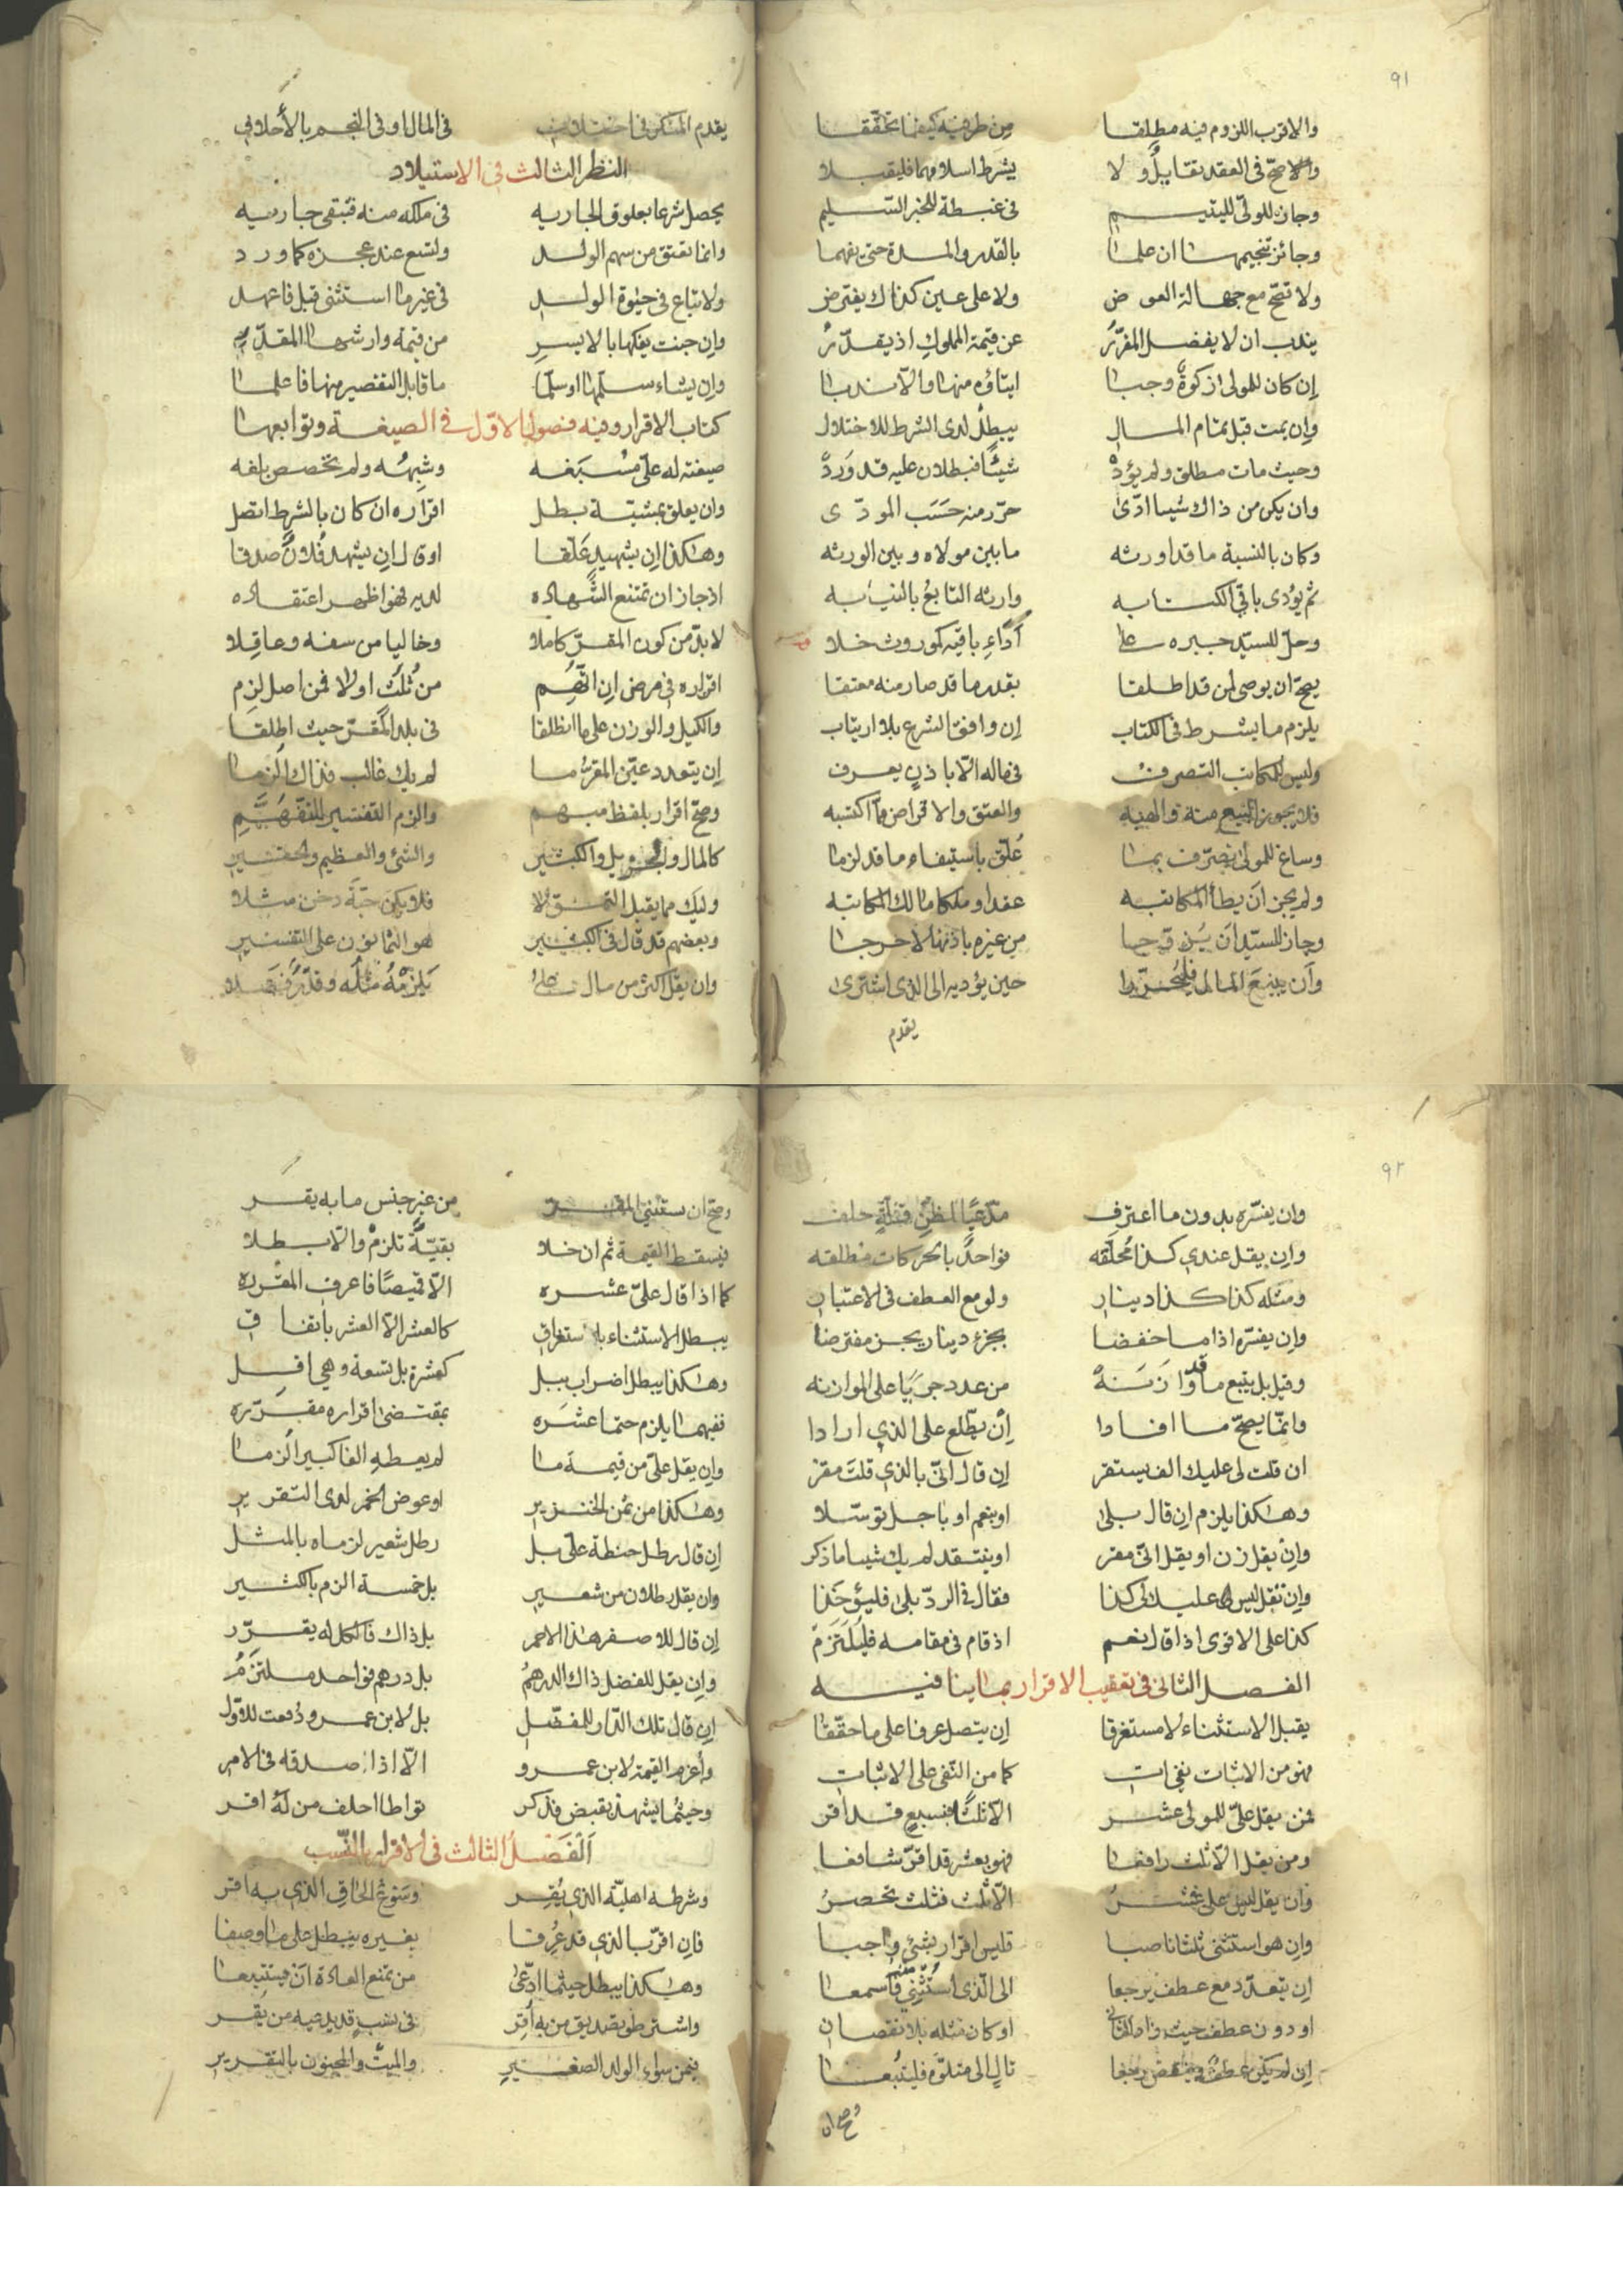 ٩١
والاقرب اللزوم فيه مطلقا من طرفيه كيفما تحققا
والاصح في العقد تقايل ولا يشرط اسلامهما فليقبلا
وجاز للولي لليتيم في غبطة للخبر السليم
وجائز تنجيمها ان علما بالقدر والمدة حتى يفهما
ولا تصح مع جهالة العوض ولا على عين كذاك يفترض
يندب ان لا يفضل المقرر عن قيمة المملوك اذ يقدر
إن كان للمولى زكوة وجبا ايتاؤه منها والا ندبا
وإن يمت قبل تمام المال يبطل لدى الشرط للاختلال
وحيث مات مطلق ولم يؤد شيئا فبطلان عليه قد ورد
وان يكن من ذاك شيئا ادى حرر منه حسب المودى
وكان بالنسبة ما قد اورثه ما بين مولاه وبين الورثه
ثم يؤدى باقي الكتابه وارثه التابع بالنيابه
وحل للسيد جبره على أداء باقيه كموروث خلا
يصح ان يوصى لمن قد اطلقا بقدر ما قد صار منه معتقا
يلزم ما يشرط في الكتاب إن وافق الشرع بلا ارتياب
وليس للمكاتب التصرف في ماله الا باذن يعرف
فلا يجوز البيع منه والهبه والعتق والاقراض مما اكتسبه
وساغ للمولى تصرف بما علق باستيفاء ما قد لزما
ولم يجز ان يطأ المكاتبه عقدا وملكا مالك المكاتبه
وجاز للسيد ان يزوجا من غيره باذنها لا حرجا
وان يبيع المال حين يؤديه الى الذي اشترى
يقدم
يقدم المنكر في اختلاف في المال او في النجم بالأحلاف
النظر الثالث في الاستيلاد
يحصل شرعا بعلوق الجاريه في ملكه منه فتبقى جاريه
وانما تعتق من سهم الولد ولتسع عند عجزه كما ورد
ولا تباع في حيوة الولد في غير ما استثني قبل فاعهد
وإن جنت يفكها بالايسر من قيمة وارشها المقدر
وإن يشاء سلمها او سلما ما قابل التقصير منها فاعلما
كتاب الاقرار وفيه فصول الاول في الصيغة وتوابعها
صيغته له علي مسبغه وشبهه ولم تخصص بلغه
وان يعلق بمشيئة بطل اقراره ان كان بالشرط اتصل
وهكذا إن بشهيد علقا او قال إن يشهد فلان صدقا
اذ جاز ان تمتنع الشهاده لديه فهو اظهر اعتقاده
لا بد من كون المقر كاملا وخاليا من سفه وعاقلا
اقراره في مرض إن اتهم من ثلث اولا فمن اصل لزم
والكيل والوزن على ما انطلقا في بلد المقر حيث اطلقا
إن يتعدد عين المقر ما لم يك غالب فذاك الزما
وصح اقرار بلفظ مبهم والزم التفسير للتفهم
كالمال والجزيل والكثير والشئ والعظيم والحقير
وليك مما يقبل التملكا فلا يكن حبة دخن مثلا
وبعضهم قد قال في الكثير هو الثمانون على التفسير
وان يقل اكثر من مال على يلزمه مثله وقدر فضلا
٩٢
وان يفسره بدون ما اعترف مدعيا لظن قلة حلف
وإن يقل عندي كذا محلقه فواحد بالحركات مطلقه
ومثله كذا كذا دينار ولو مع العطف في الاعتبار
وإن يفسره اذا ما خفضا بجزء دينار يجز مفترضا
وقيل بل يتبع ما قد وازنه من عدد جريا على الموازنه
وانما يصح ما افادا إن يطلع على الذي ارادا
ان قلت لي عليك الف يستقر إن قال اني بالذي قلت مقر
وهكذا يلزم إن قال بلى او بنعم او باجل توسلا
وإن يقل زن او يقل اني مقر او ينتقد لم يك شيئا ما ذكر
وإن تقل ليس عليك لي كذا فقال في الرد بلى فليؤخذا
كذا على الاقوى اذا قال نعم اذ قام في مقامه فليلتزم
الفصل الثاني في تعقيب الاقرار بما ينافيه
يقبل الاستثناء لا مستغرقا إن يتصل عرفا على ما حققا
فهو من الاثبات نفي ات كما من النفي على الاثبات
فمن يقل علي للمولى عشر الا ثلثا فبسبع قد اقر
ومن يقل الا ثلث رافعا فهو بعشر قد اقر شافعا
وان يقل ليس علي عشر الا ثلث فثلث تحصر
وإن هو استثنى ثلثا ناصبا فليس اقرار بشئ واجبا
إن يتعدد مع عطف يرجعا الى الذي استثني منه فاسمعا
او دون عطف حيث زاد الثاني او كان مثله بلا نقصان
إن لم يكن عطف ونقص رجعا تال الى متلوه فليتبعا
وصح ان
وصح ان يستثني المقر من غير جنس ما به يقر
فيسقط القيمة ثم ان خلا بقية تلزم والا بطلا
كما اذا قال علي عشره الا قميصا فاعرف المقرره
يبطل الاستثناء باستغراق كالعشر الا العشر باتفاق
وهكذا يبطل اضراب ببل كعشرة بل تسعة وهي اقل
ففيهما يلزم حتما عشره بمقتضى اقراره مقرره
وإن يقل علي من قيمة ما لم يعطه الفا كبيرا الزما
وهكذا من ثمن الخنزير او عوض الخمر لدى التقرير
إن قال رطل حنطة علي بل رطل شعير لزماه بالمثل
وان يقل رطلان من شعير بل خمسة الزم بالكثير
إن قال للاصفر هذا الاحمر بل ذاك فالكل له يقرر
وإن يقل للفضل ذاك الدرهم بل درهم فواحد ملتزم
إن قال تلك الدار للمفضل بل لابن عمرو دفعت للاول
وأغرم القيمة لابن عمرو الا اذا صدقه في الامر
وحيثما يشهد بقبض فذكر تواطا احلف من له اقر
الفصل الثالث في الاقرار بالنسب
وشرطه اهلية الذي يقر وسوغ الحاق الذي به اقر
فان اقر بالذي قد عرفا بغيره يبطل على ما وصفا
وهكذا يبطل حيثما ادعى من تمنع العادة ان يستتبعا
واشترطوا تصديق من به أقر في نسب قد يدعيه من يقر
فيمن سواء الولد الصغير والميت والمجنون بالتقرير